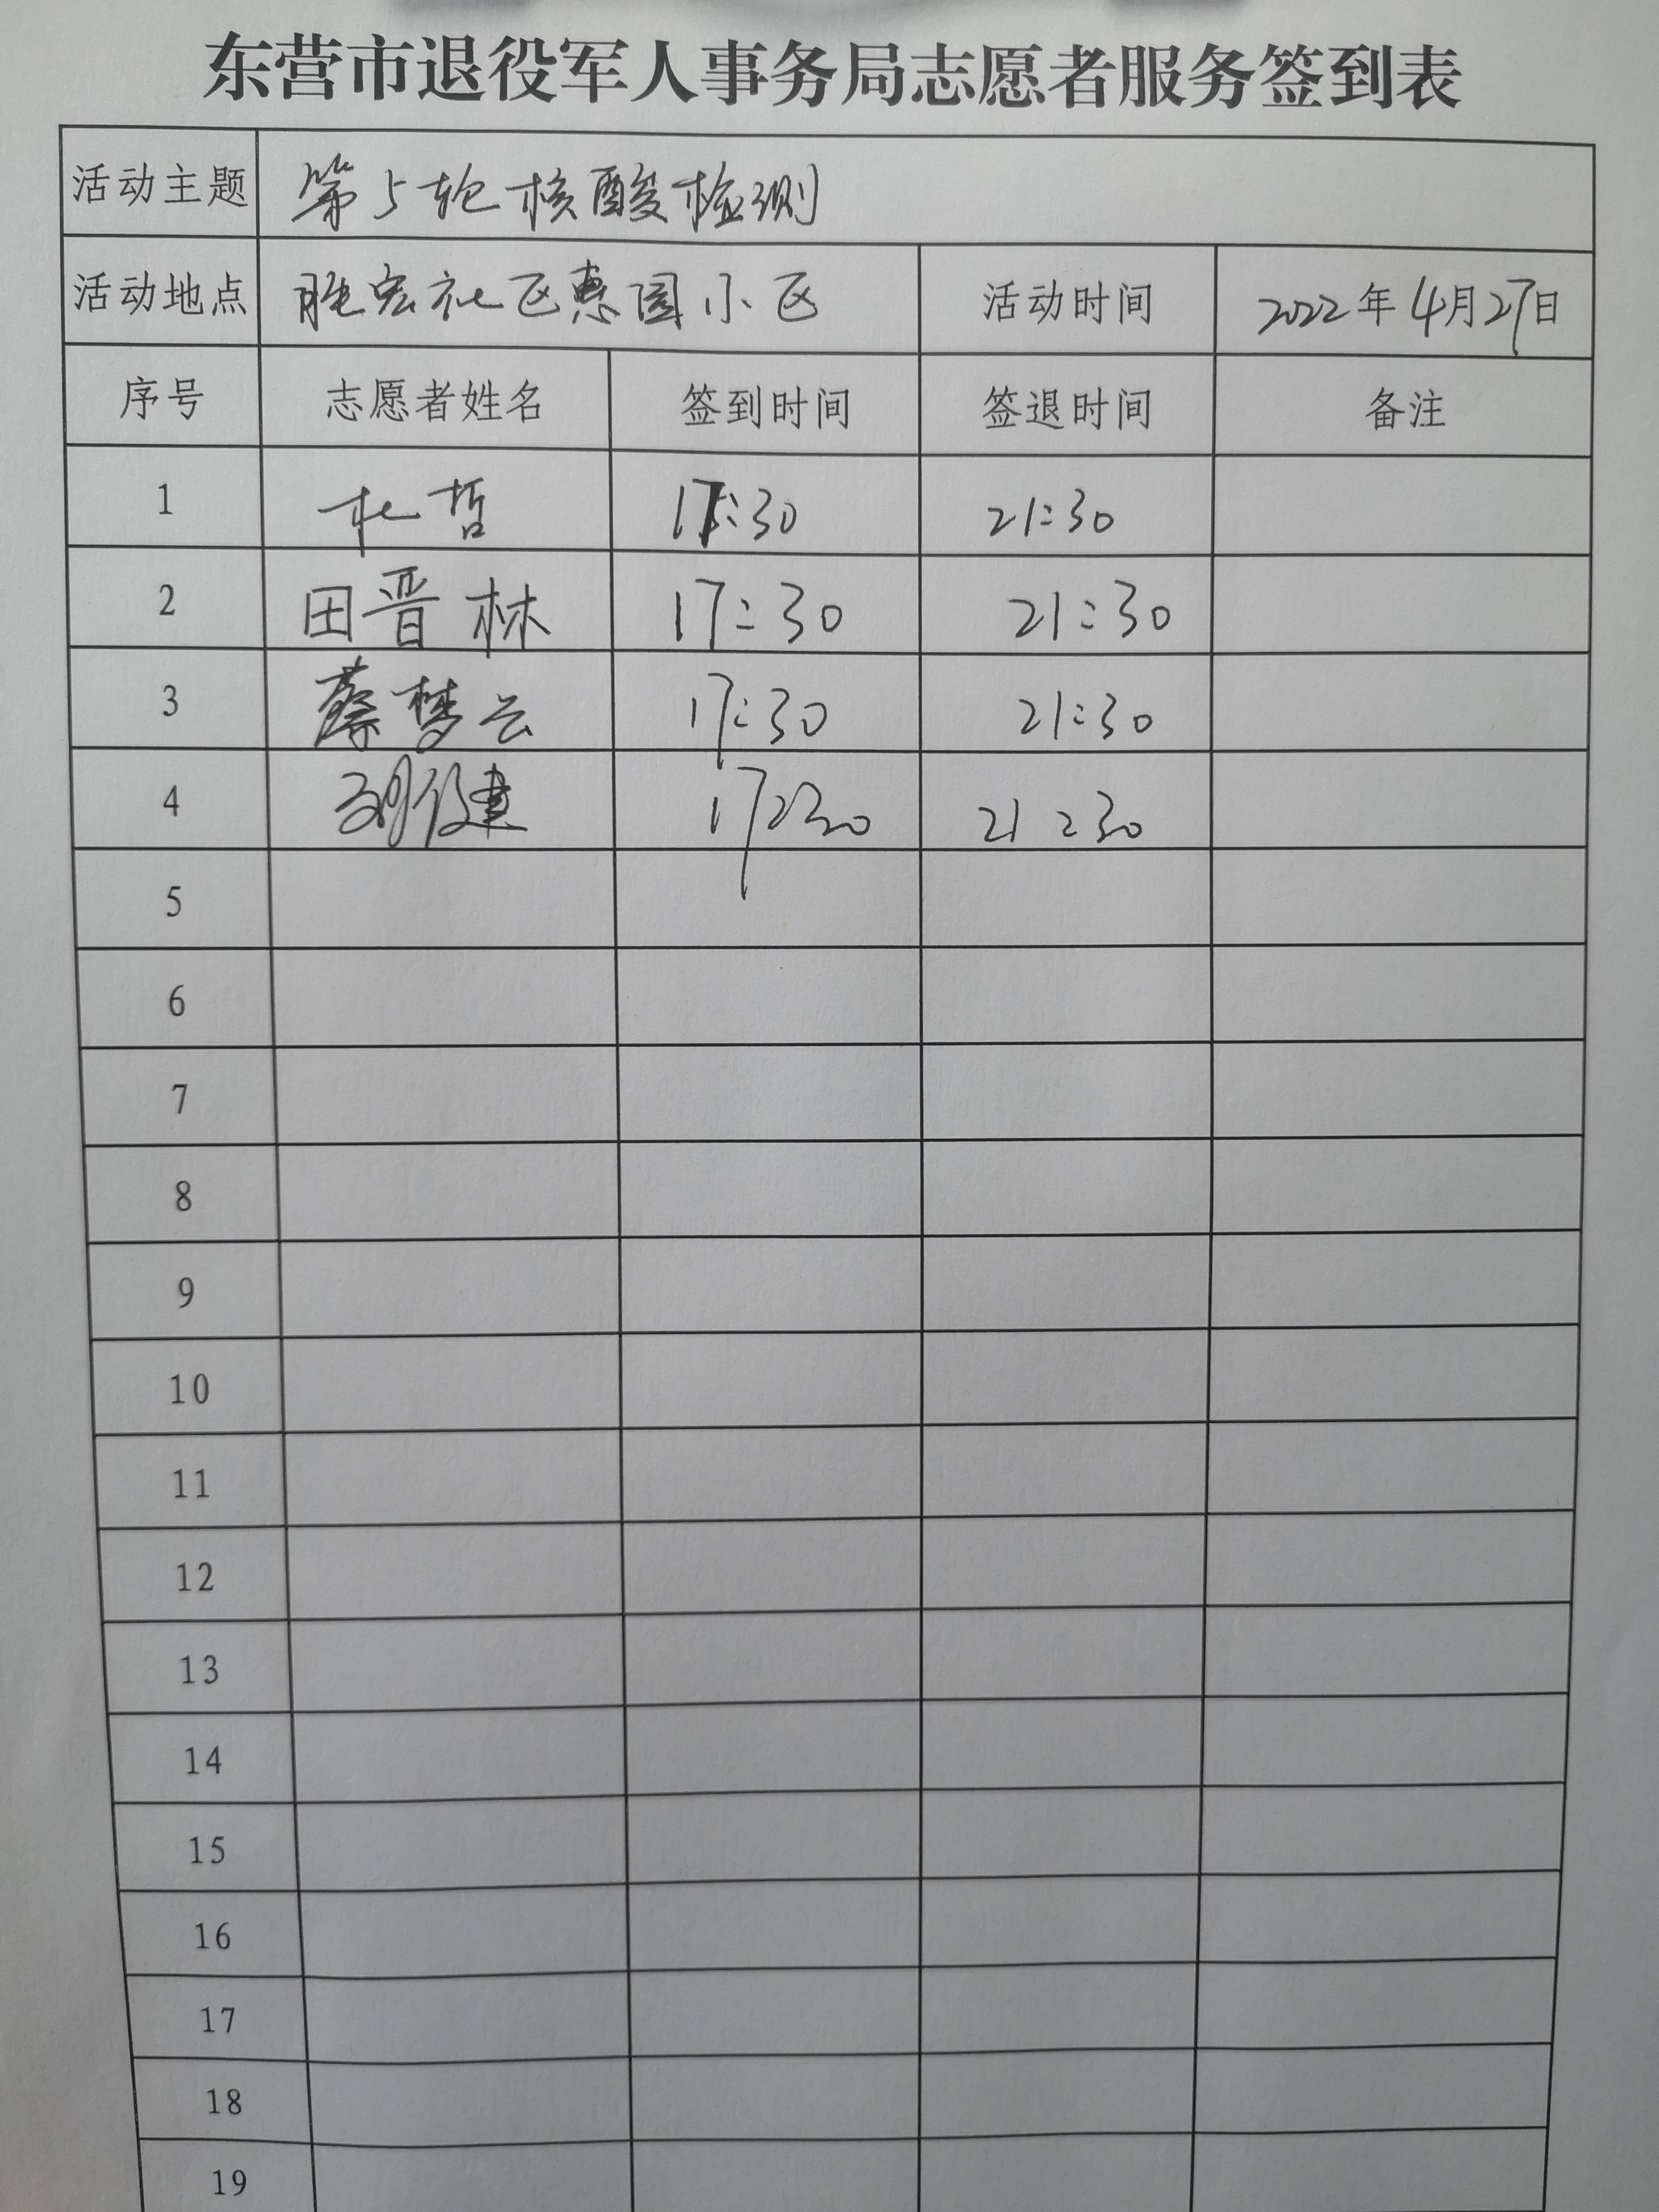 东营市退役军人事务局志愿者服务签到表
活动主题 第5轮核酸检测
活动地点 胜宏社区惠园小区 活动时间 2022年4月27日
序号 志愿者姓名 签到时间 签退时间 备注
1 杜哲 17:30 21:30
2 田晋林 17:30 21:30
3 蔡梦云 17:30 21:30
4 17:30 21:30
5
6
7
8
9
10
11
12
13
14
15
16
17
18
19